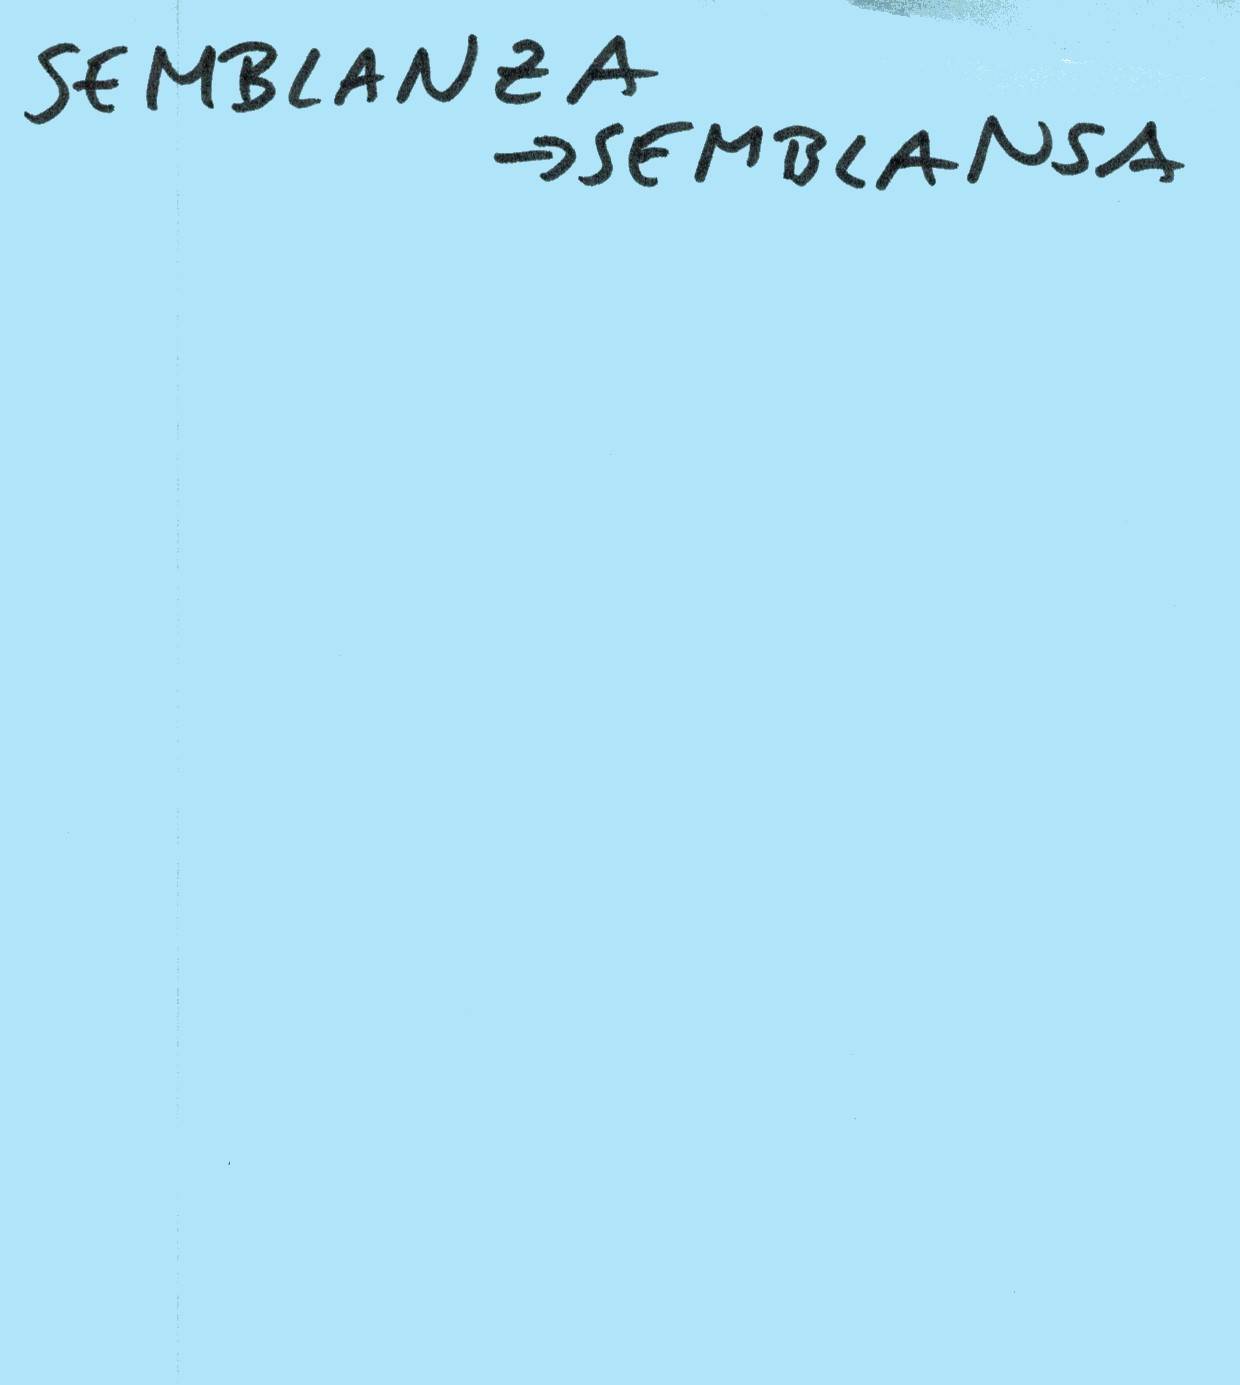 SEMBLANZA
→SEMBLANSA